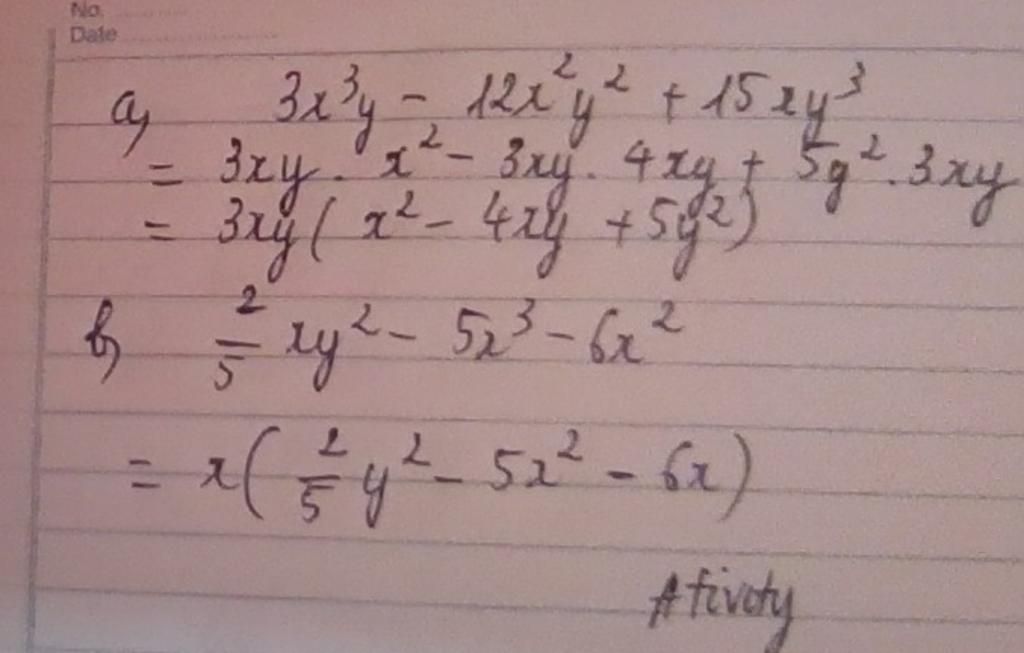 No.
Date
a, 3x³y - 12x²y² + 15xy³
= 3xy. x² - 3xy. 4xy + 5y². 3xy
= 3xy( x² - 4xy + 5y²)
b, 2/5 xy² - 5x³ - 6x²
= x( 2/5 y² - 5x² - 6x)